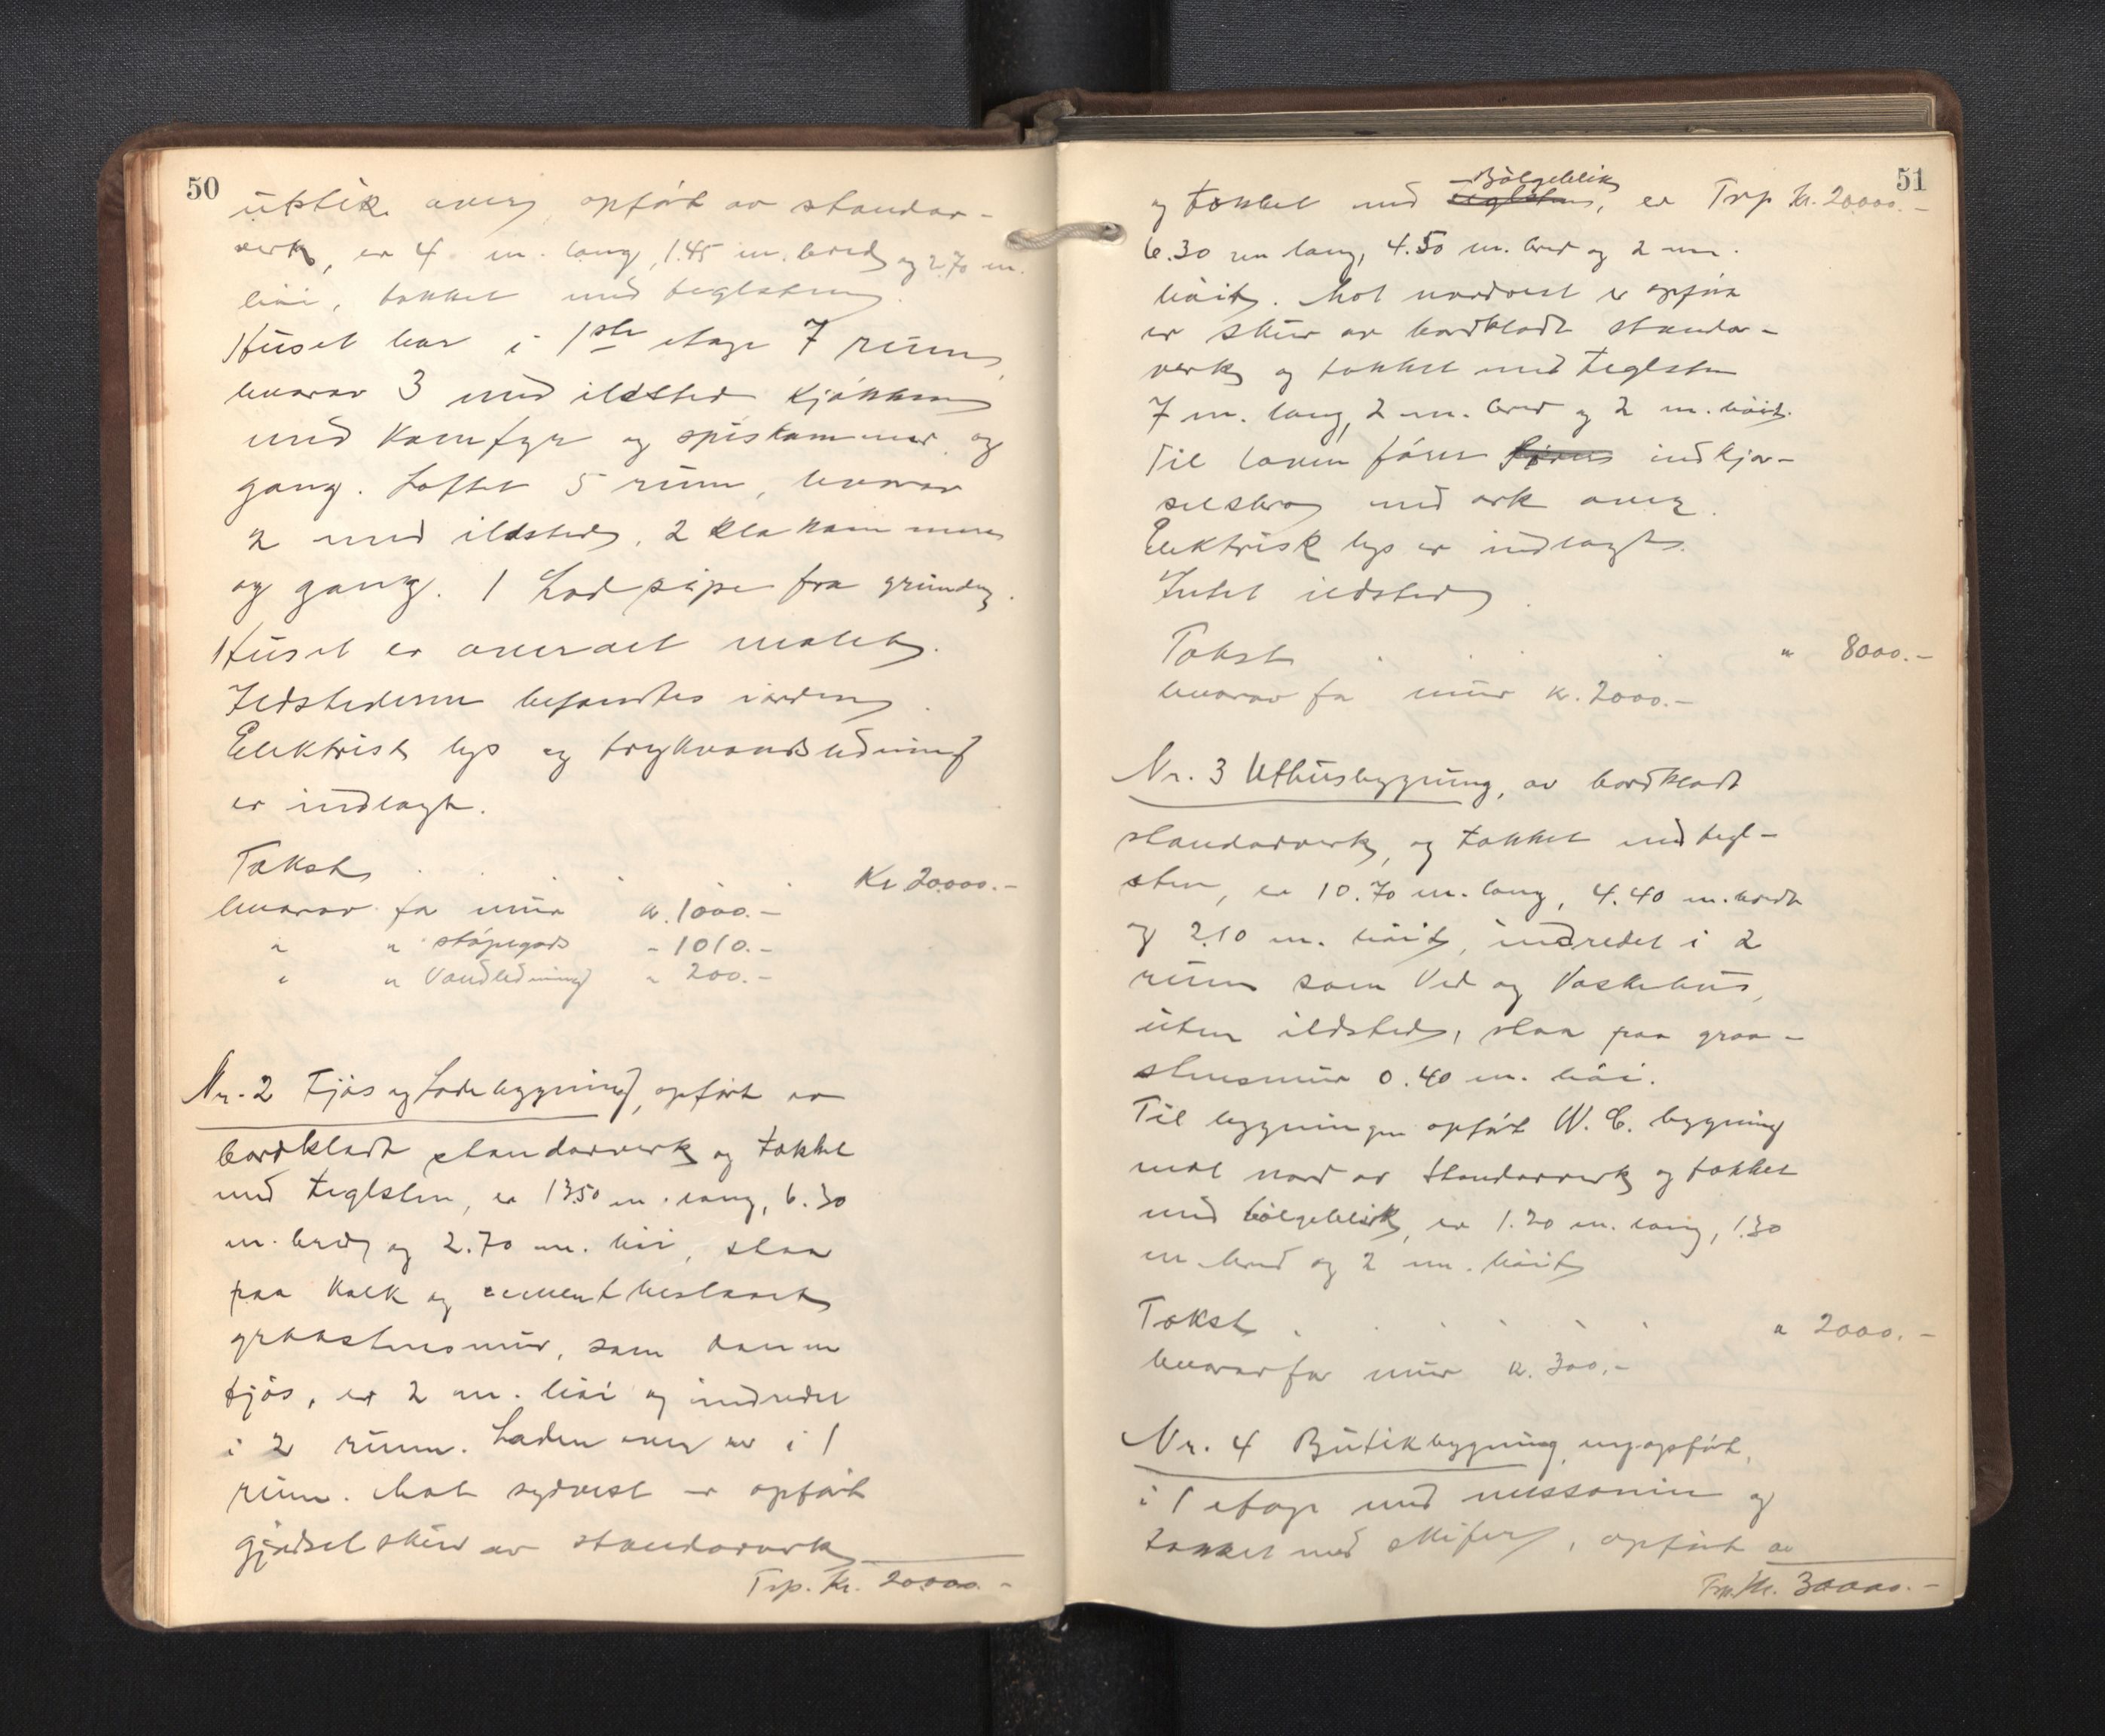 50
utstik over, opført av standar-
verk, er 4 m. lang, 1.45 m. bred og 2.70 m.
høi, tækket med teglsten.
Huset har i 1ste etage 7 rum,
hvorav 3 med ildsted kjøkken
med komfyr og spiskammer og
gang. Loftet 5 rum, hvorav
2 med ildsted, 2 klækammere
og gang. 1 Lod pipe fra grunden.
Huset er overalt malet.
Ildstederne befandtes i orden.
Elektrisk lys og trykvandsledning
er indlagt.
Takst . . . . Kr. 20000.-
hvorav for mur kr. 1000.-
" " støpegods " 1010.-
" " Vandledning " 200.-
Nr. 2 Fjøs og Ladebygning, opført av
bordklædt standarverk og tækket
med teglsten, er 13.50 m. lang, 6.30
m. bred og 2.70 m. høi, staar
paa kalk og cementbeslaaet
graastensmur, som danner
fjøs, er 2 m. høi og indredet
i 2 rum. Laden over er i 1
rum. Mot sydvest er opført
gjødselskur av standarverk
Trp. Kr. 20000.-
51
Bølgeblik
og tækket med teglsten, er Trp Kr. 20000.-
6.30 m lang, 4.50 m. bred og 2 m.
høit. Mot nordvest er opført
er skur av bordklædt standar-
verk og tækket med teglsten
7 m. lang, 2 m. bred og 2 m. høit.
Til laven fører indkjø-
selsbro med ark over.
Elektrisk lys er indlagt.
Intet ildsted.
Takst . . . " 8000.-
hvorav for mur kr. 2000.-
Nr. 3 Uthusbygning, av bordklædt
standarverk, og tækket med tegl-
sten, er 10.70 m. lang, 4.40 m. bredt
og 2.10 m. høit, indredet i 2
rum som Ved og Vaskehus,
uten ildsted, staar paa graa-
stensmur 0.40 m. høi.
Til bygningen opført W.C. bygning
mot nord av standarverk og tækket
med bølgeblik, er 1.20 m. lang, 1.30
m bred og 2 m. høit
Takst . . . . . . " 2000.-
hvorav for mur kr. 300.-
Nr. 4 Butikbygning, nyopført,
i 1 etage med messanin og
tækket med skifer, opført av
Trp. Kr. 30000.-